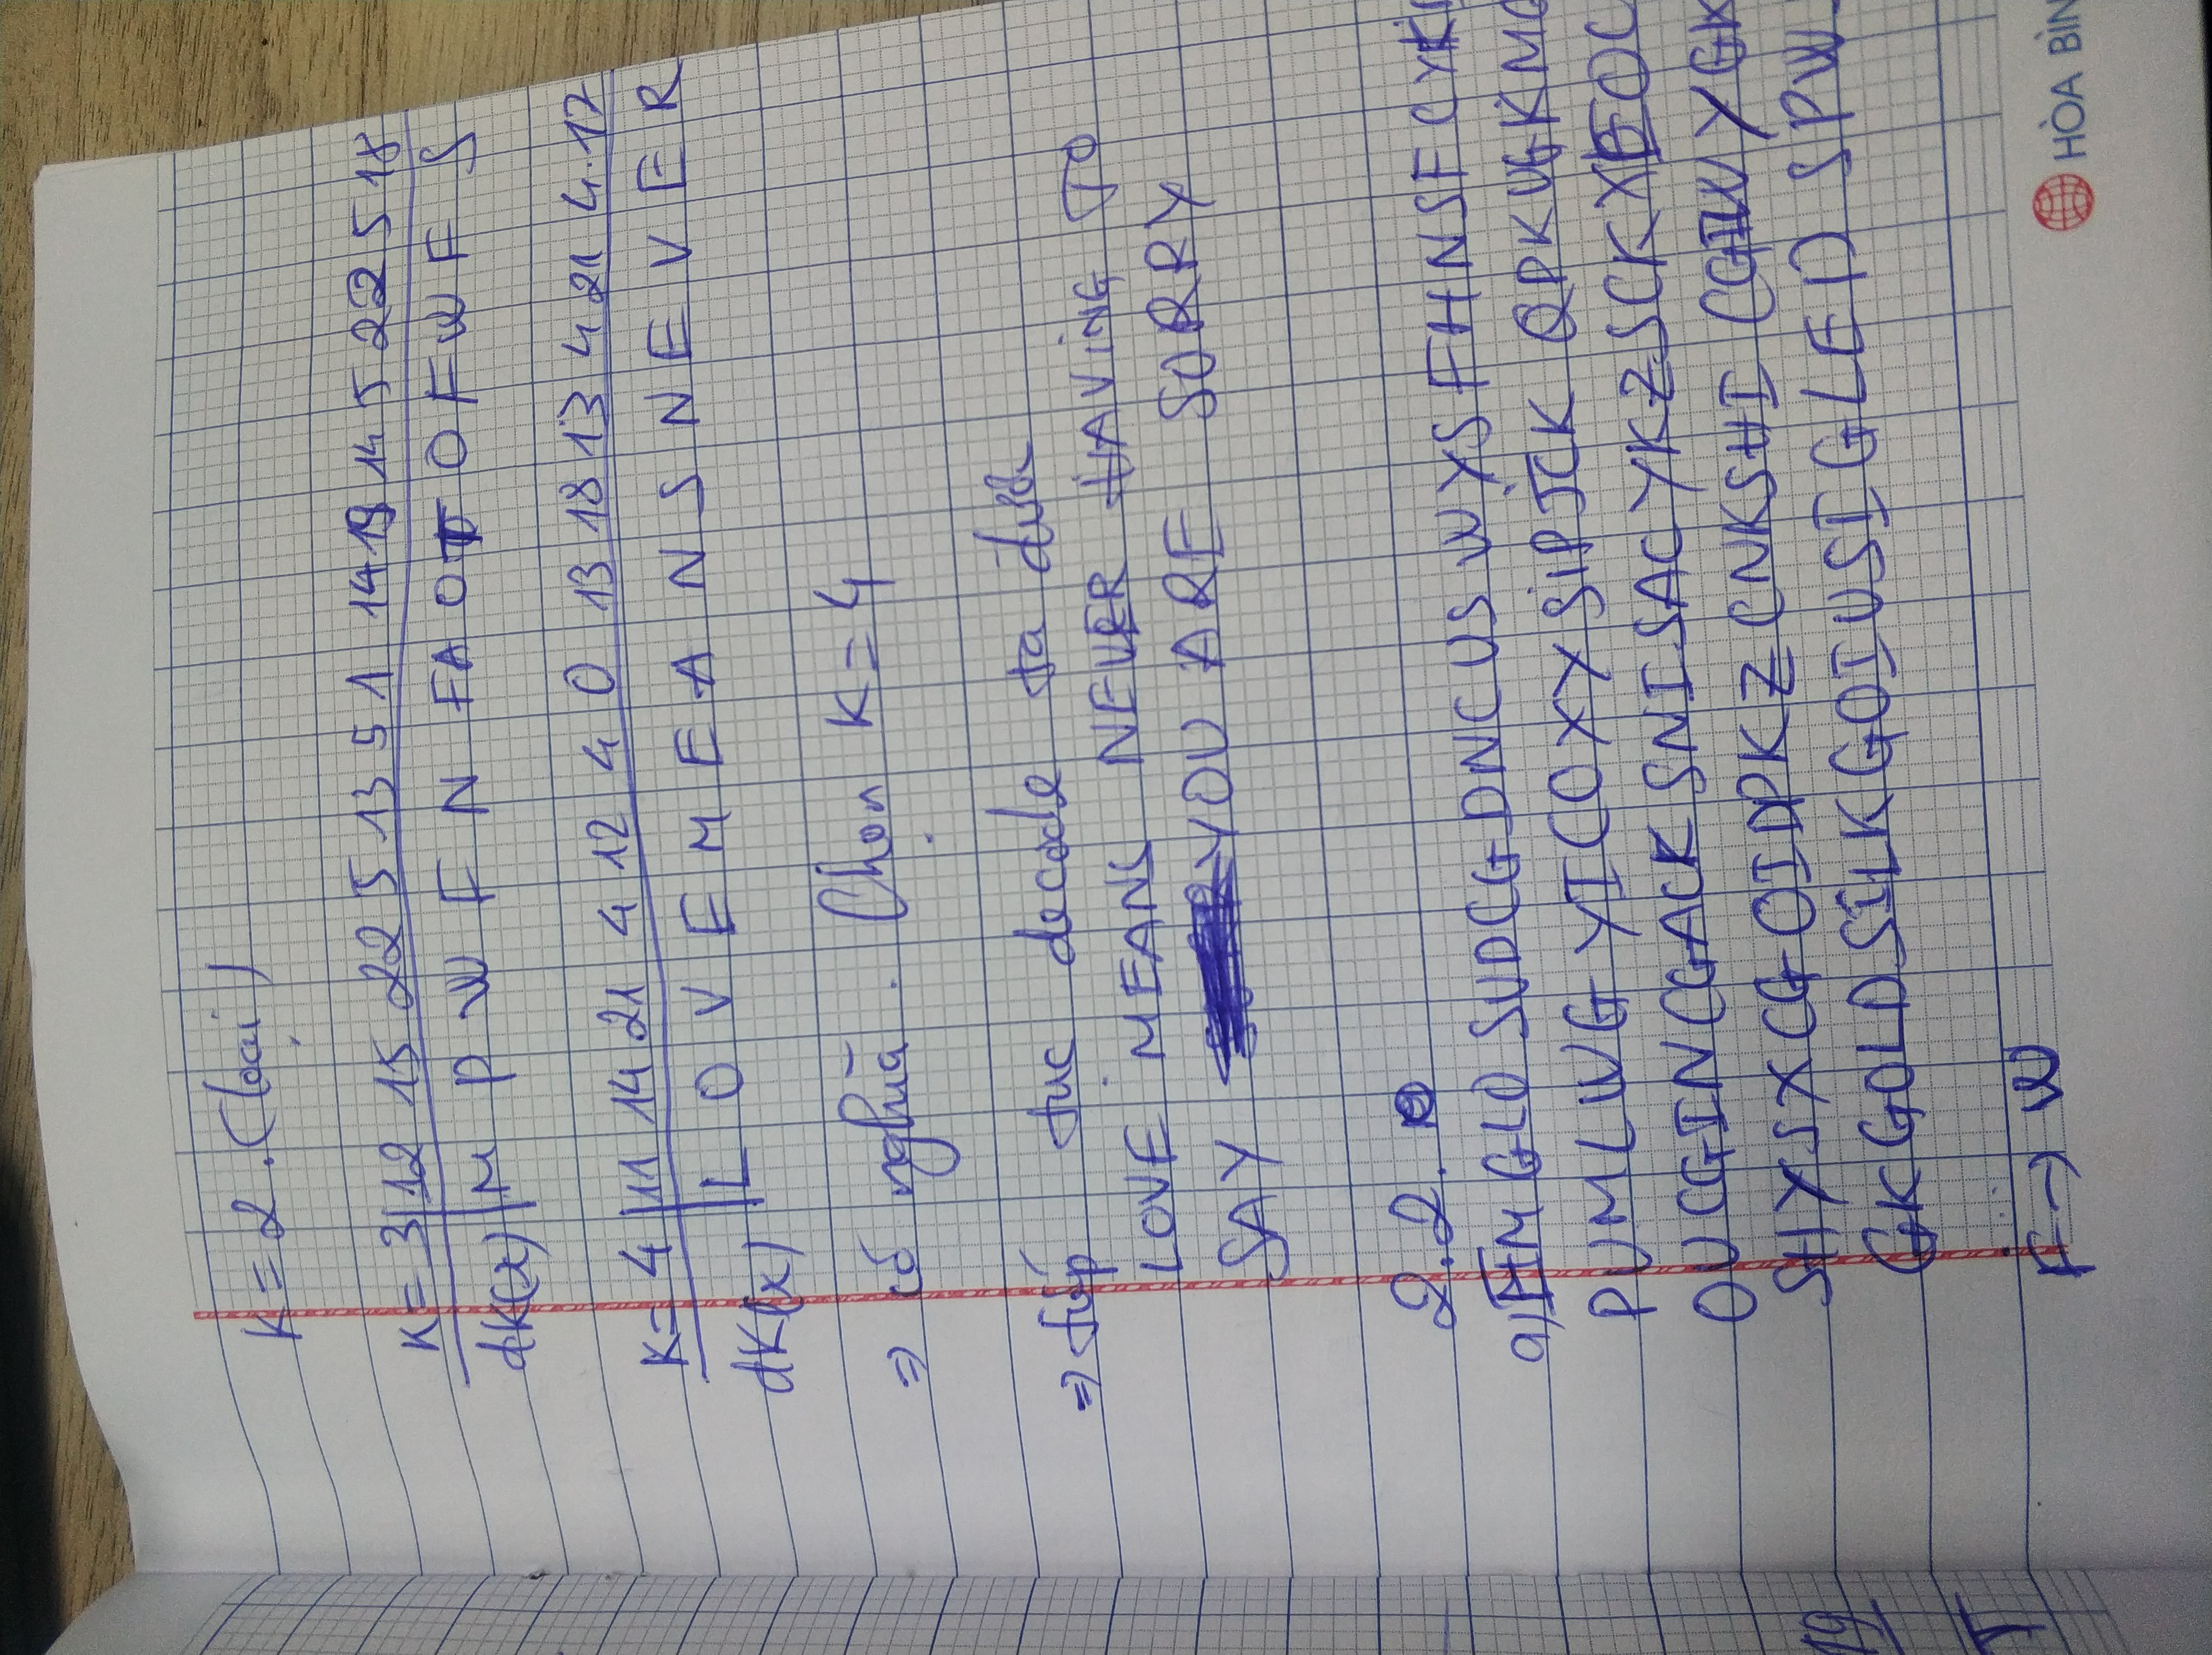 K = 2 . (loại)
K = 3 12 15 22 5 13 5 1 14 19 14 5 22 5 18
dK(x) M P W F N F A O T O F W F S
K = 4 11 14 21 4 12 4 0 13 18 13 4 21 4 . 17
dK(x) L O V E M E A N S N E V E R
⇒ có nghĩa . Chọn K = 4
⇒ tiếp tục decode ta được
LOVE MEANS NEVER HAVING TO
SAY YOU ARE SORRY
2.2.
a) EMGLOSUDCGDNCUSWYSFHNSFCYK
PUMLWGYICOXYSIPJCKQPKUGKMG
OUCGINCGACKSNISACYKZSCKXEOC
SHYSXCGOIDPKZCNKSHICGIWYGK
GKGOLDSILKGOIUSIGLEDSPW
F → W
19
T
HÒA BÌN